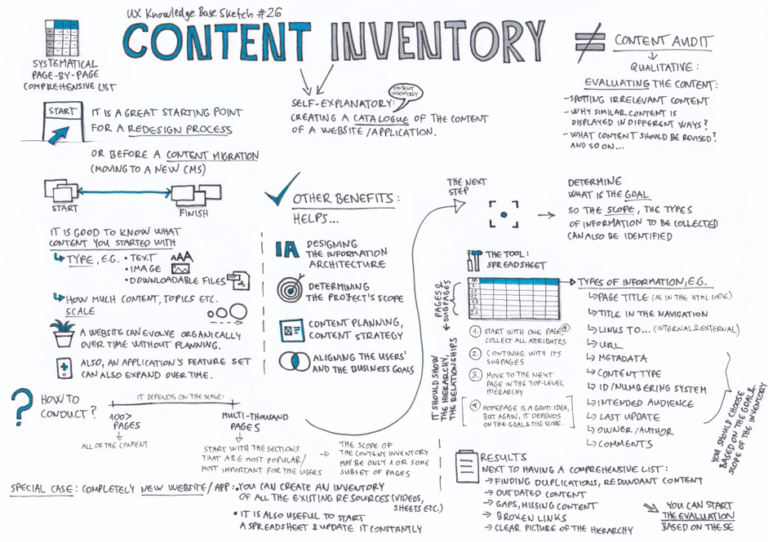 UX Knowledge Base Sketch #26
CONTENT INVENTORY
SYSTEMATICAL
PAGE-BY-PAGE
COMPREHENSIVE LIST
START
IT IS A GREAT STARTING POINT
FOR A REDESIGN PROCESS
OR BEFORE A CONTENT MIGRATION
(MOVING TO A NEW CMS)
START
FINISH
IT IS GOOD TO KNOW WHAT
CONTENT YOU STARTED WITH
TYPE, E.G. • TEXT AAA
• IMAGE
• DOWNLOADABLE FILES
HOW MUCH CONTENT, TOPICS ETC.
SCALE
A WEBSITE CAN EVOLVE ORGANICALLY
OVER TIME WITHOUT PLANNING.
ALSO, AN APPLICATION'S FEATURE SET
CAN ALSO EXPAND OVER TIME.
SELF-EXPLANATORY:
CONTENT
INVENTORY
CREATING A CATALOGUE OF THE CONTENT
OF A WEBSITE/APPLICATION.
≠ CONTENT AUDIT
QUALITATIVE:
EVALUATING THE CONTENT:
- SPOTTING IRRELEVANT CONTENT
- WHY SIMILAR CONTENT IS
DISPLAYED IN DIFFERENT WAYS?
- WHAT CONTENT SHOULD BE REVISED?
AND SO ON...
OTHER BENEFITS:
HELPS...
IA DESIGNING
THE INFORMATION
ARCHITECTURE
DETERMINING
THE PROJECT'S SCOPE
CONTENT PLANNING,
CONTENT STRATEGY
ALIGNING THE USERS'
AND THE BUSINESS GOALS
THE NEXT
STEP
DETERMINE
WHAT IS THE GOAL
SO THE SCOPE, THE TYPES
OF INFORMATION TO BE COLLECTED
CAN ALSO BE IDENTIFIED
THE TOOL:
SPREADSHEET
PAGES &
SUBPAGES
IT SHOULD SHOW
THE HIERARCHY,
THE RELATIONSHIPS
1 START WITH ONE PAGE, (4)
COLLECT ALL ATTRIBUTES
2 CONTINUE WITH ITS
SUBPAGES
3 MOVE TO THE NEXT
PAGE IN THE TOP-LEVEL
HIERARCHY
4 HOMEPAGE IS A GOOD IDEA,
BUT AGAIN, IT DEPENDS
ON THE GOAL & THE SCOPE.
TYPES OF INFORMATION, E.G.
PAGE TITLE (AS IN THE HTML CODE)
TITLE IN THE NAVIGATION
LINKS TO... (INTERNAL/EXTERNAL)
URL
METADATA
CONTENT TYPE
ID/NUMBERING SYSTEM
INTENDED AUDIENCE
LAST UPDATE
OWNER/AUTHOR
COMMENTS
YOU SHOULD CHOOSE
BASED ON THE GOAL &
SCOPE OF THE INVENTORY
? HOW TO
CONDUCT?
IT DEPENDS ON THE SCALE:
100>
PAGES
ALL OF THE CONTENT
MULTI-THOUSAND
PAGES
START WITH THE SECTIONS
THAT ARE MOST POPULAR/
MOST IMPORTANT FOR THE USERS
THE SCOPE OF
THE CONTENT INVENTORY
MAY BE ONLY A OR SOME
SUBSET OF PAGES
SPECIAL CASE: COMPLETELY NEW WEBSITE/APP: • YOU CAN CREATE AN INVENTORY
OF ALL THE EXISTING RESOURCES (VIDEOS,
SHEETS ETC.)
• IT IS ALSO USEFUL TO START
A SPREADSHEET & UPDATE IT CONSTANTLY
RESULTS
NEXT TO HAVING A COMPREHENSIVE LIST:
→ FINDING DUPLICATIONS, REDUNDANT CONTENT
→ OUTDATED CONTENT
→ GAPS, MISSING CONTENT
→ BROKEN LINKS
→ CLEAR PICTURE OF THE HIERARCHY
YOU CAN START
THE EVALUATION
BASED ON THESE